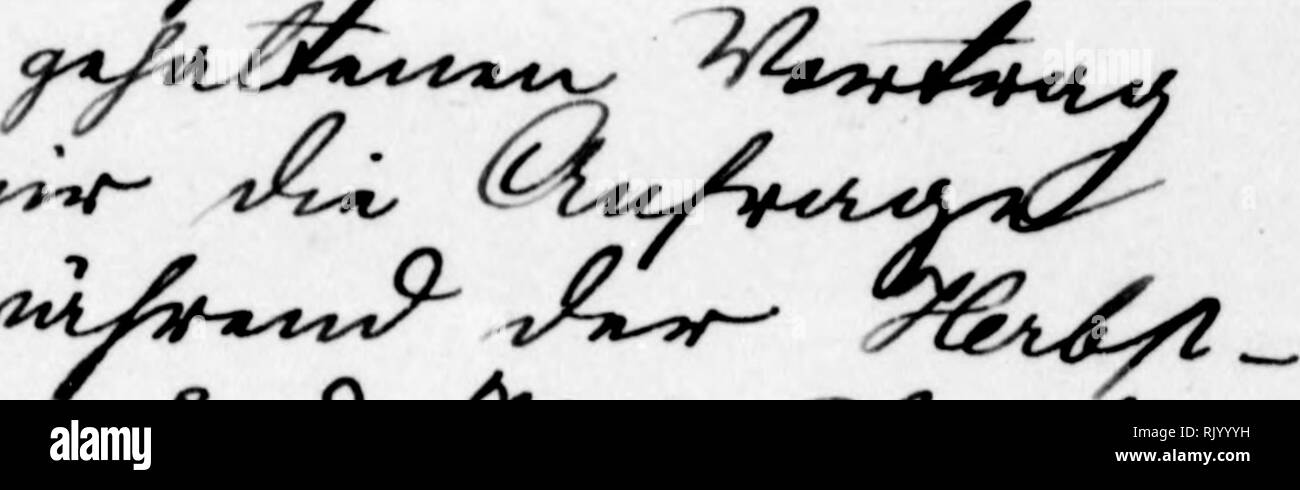 gehaltenen Vortrag
die Anfrage
während der Herbst-
alamy
Image ID: RJYYYH
www.alamy.com